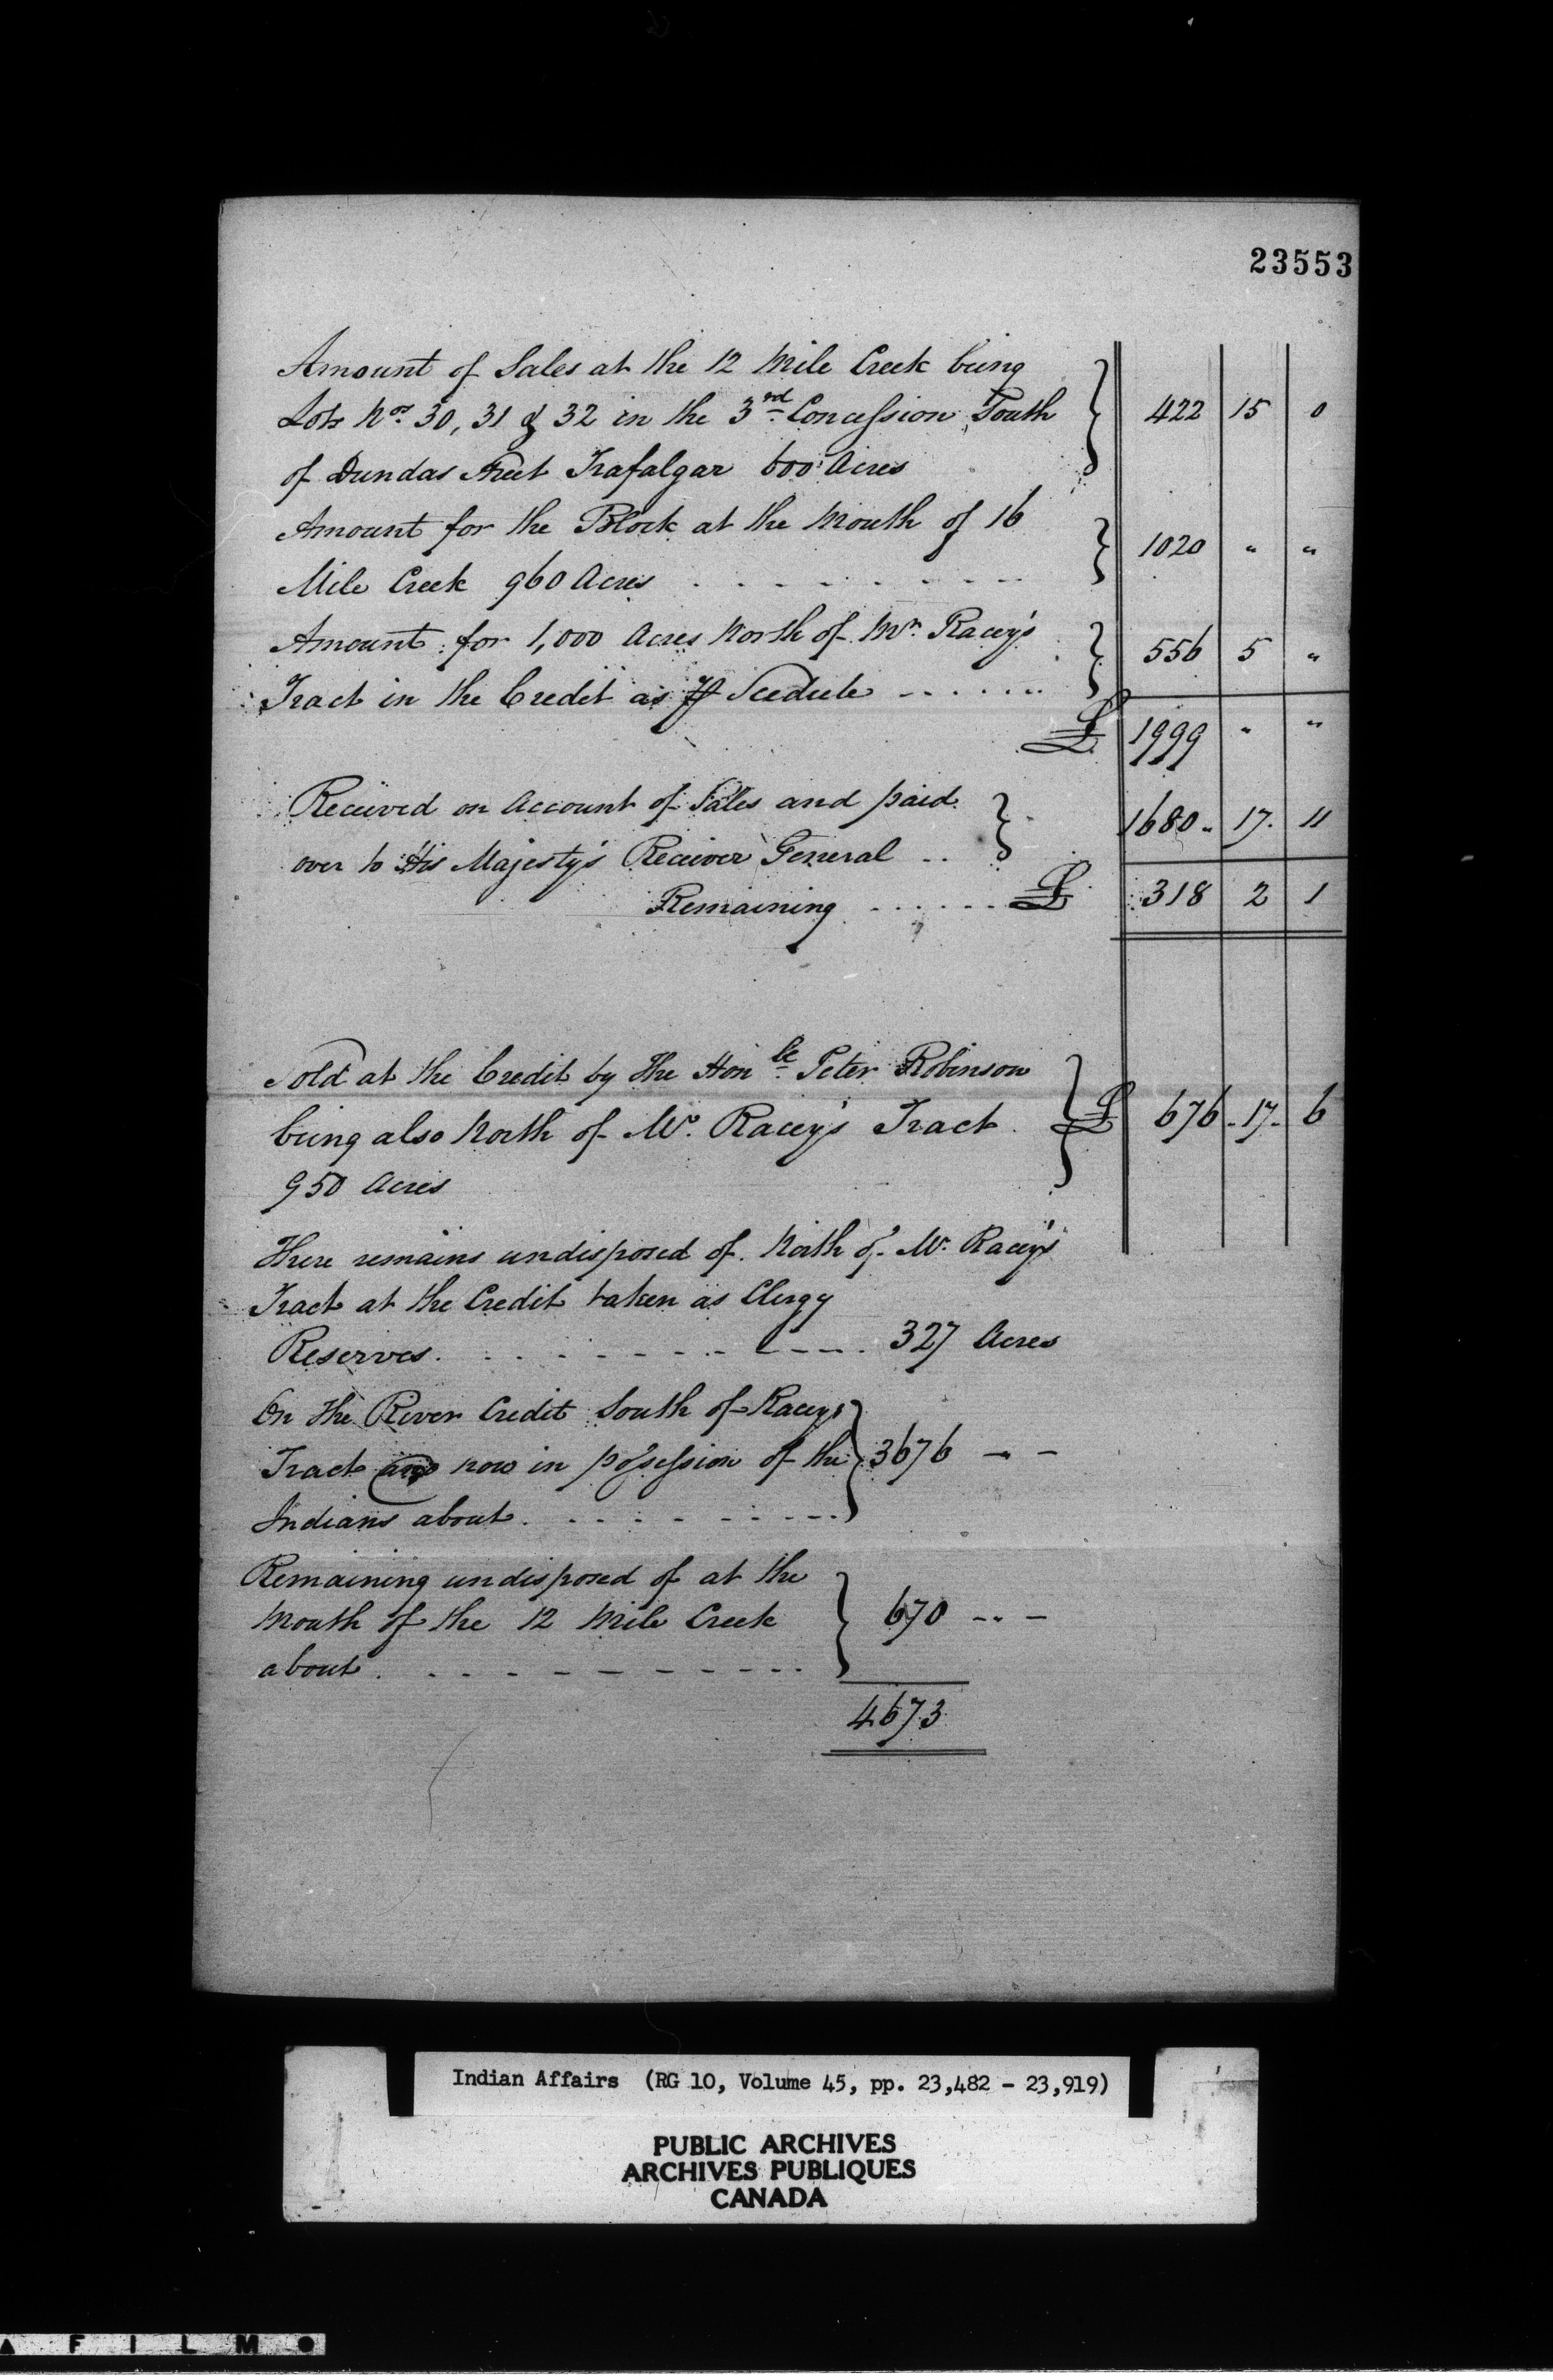 23553
Amount of Sales at the 12 Mile Creek being
Lots Nos. 30, 31 & 32 in the 3rd Concession South } 422 | 15 | 0
of Dundas Street Trafalgar 600 Acres
Amount for the Block at the Mouth of 16
Mile Creek 960 Acres . . . . . . . . . } 1020 | " | "
Amount for 1,000 Acres North of Mr. Racey's
Tract in the Credit as ⅌ Scedule . . . . . . . } 556 | 5 | "
£ 1999 | " | "
Received on Account of Sales and paid
over to His Majesty's Receiver General . . } 1680 | 17 | 11
Remaining . . . . . . £ 318 | 2 | 1
Sold at the Credit by the Honble Peter Robinson
being also North of Mr. Racey's Tract } £ 676 | 17 | 6
950 Acres
There remains undisposed of North of Mr. Racey's
Tract at the Credit taken as Clergy
Reserves . . . . . . . . . . . 327 Acres
On the River Credit South of Raceys
Tract and now in possession of the } 3676 " –
Indians about . . . . . . . . . .
Remaining undisposed of at the
Mouth of the 12 Mile Creek } 670 – " –
about . . . . . . . . . . .
4673
Indian Affairs (RG 10, Volume 45, pp. 23,482 - 23,919)
PUBLIC ARCHIVES
ARCHIVES PUBLIQUES
CANADA
FILM